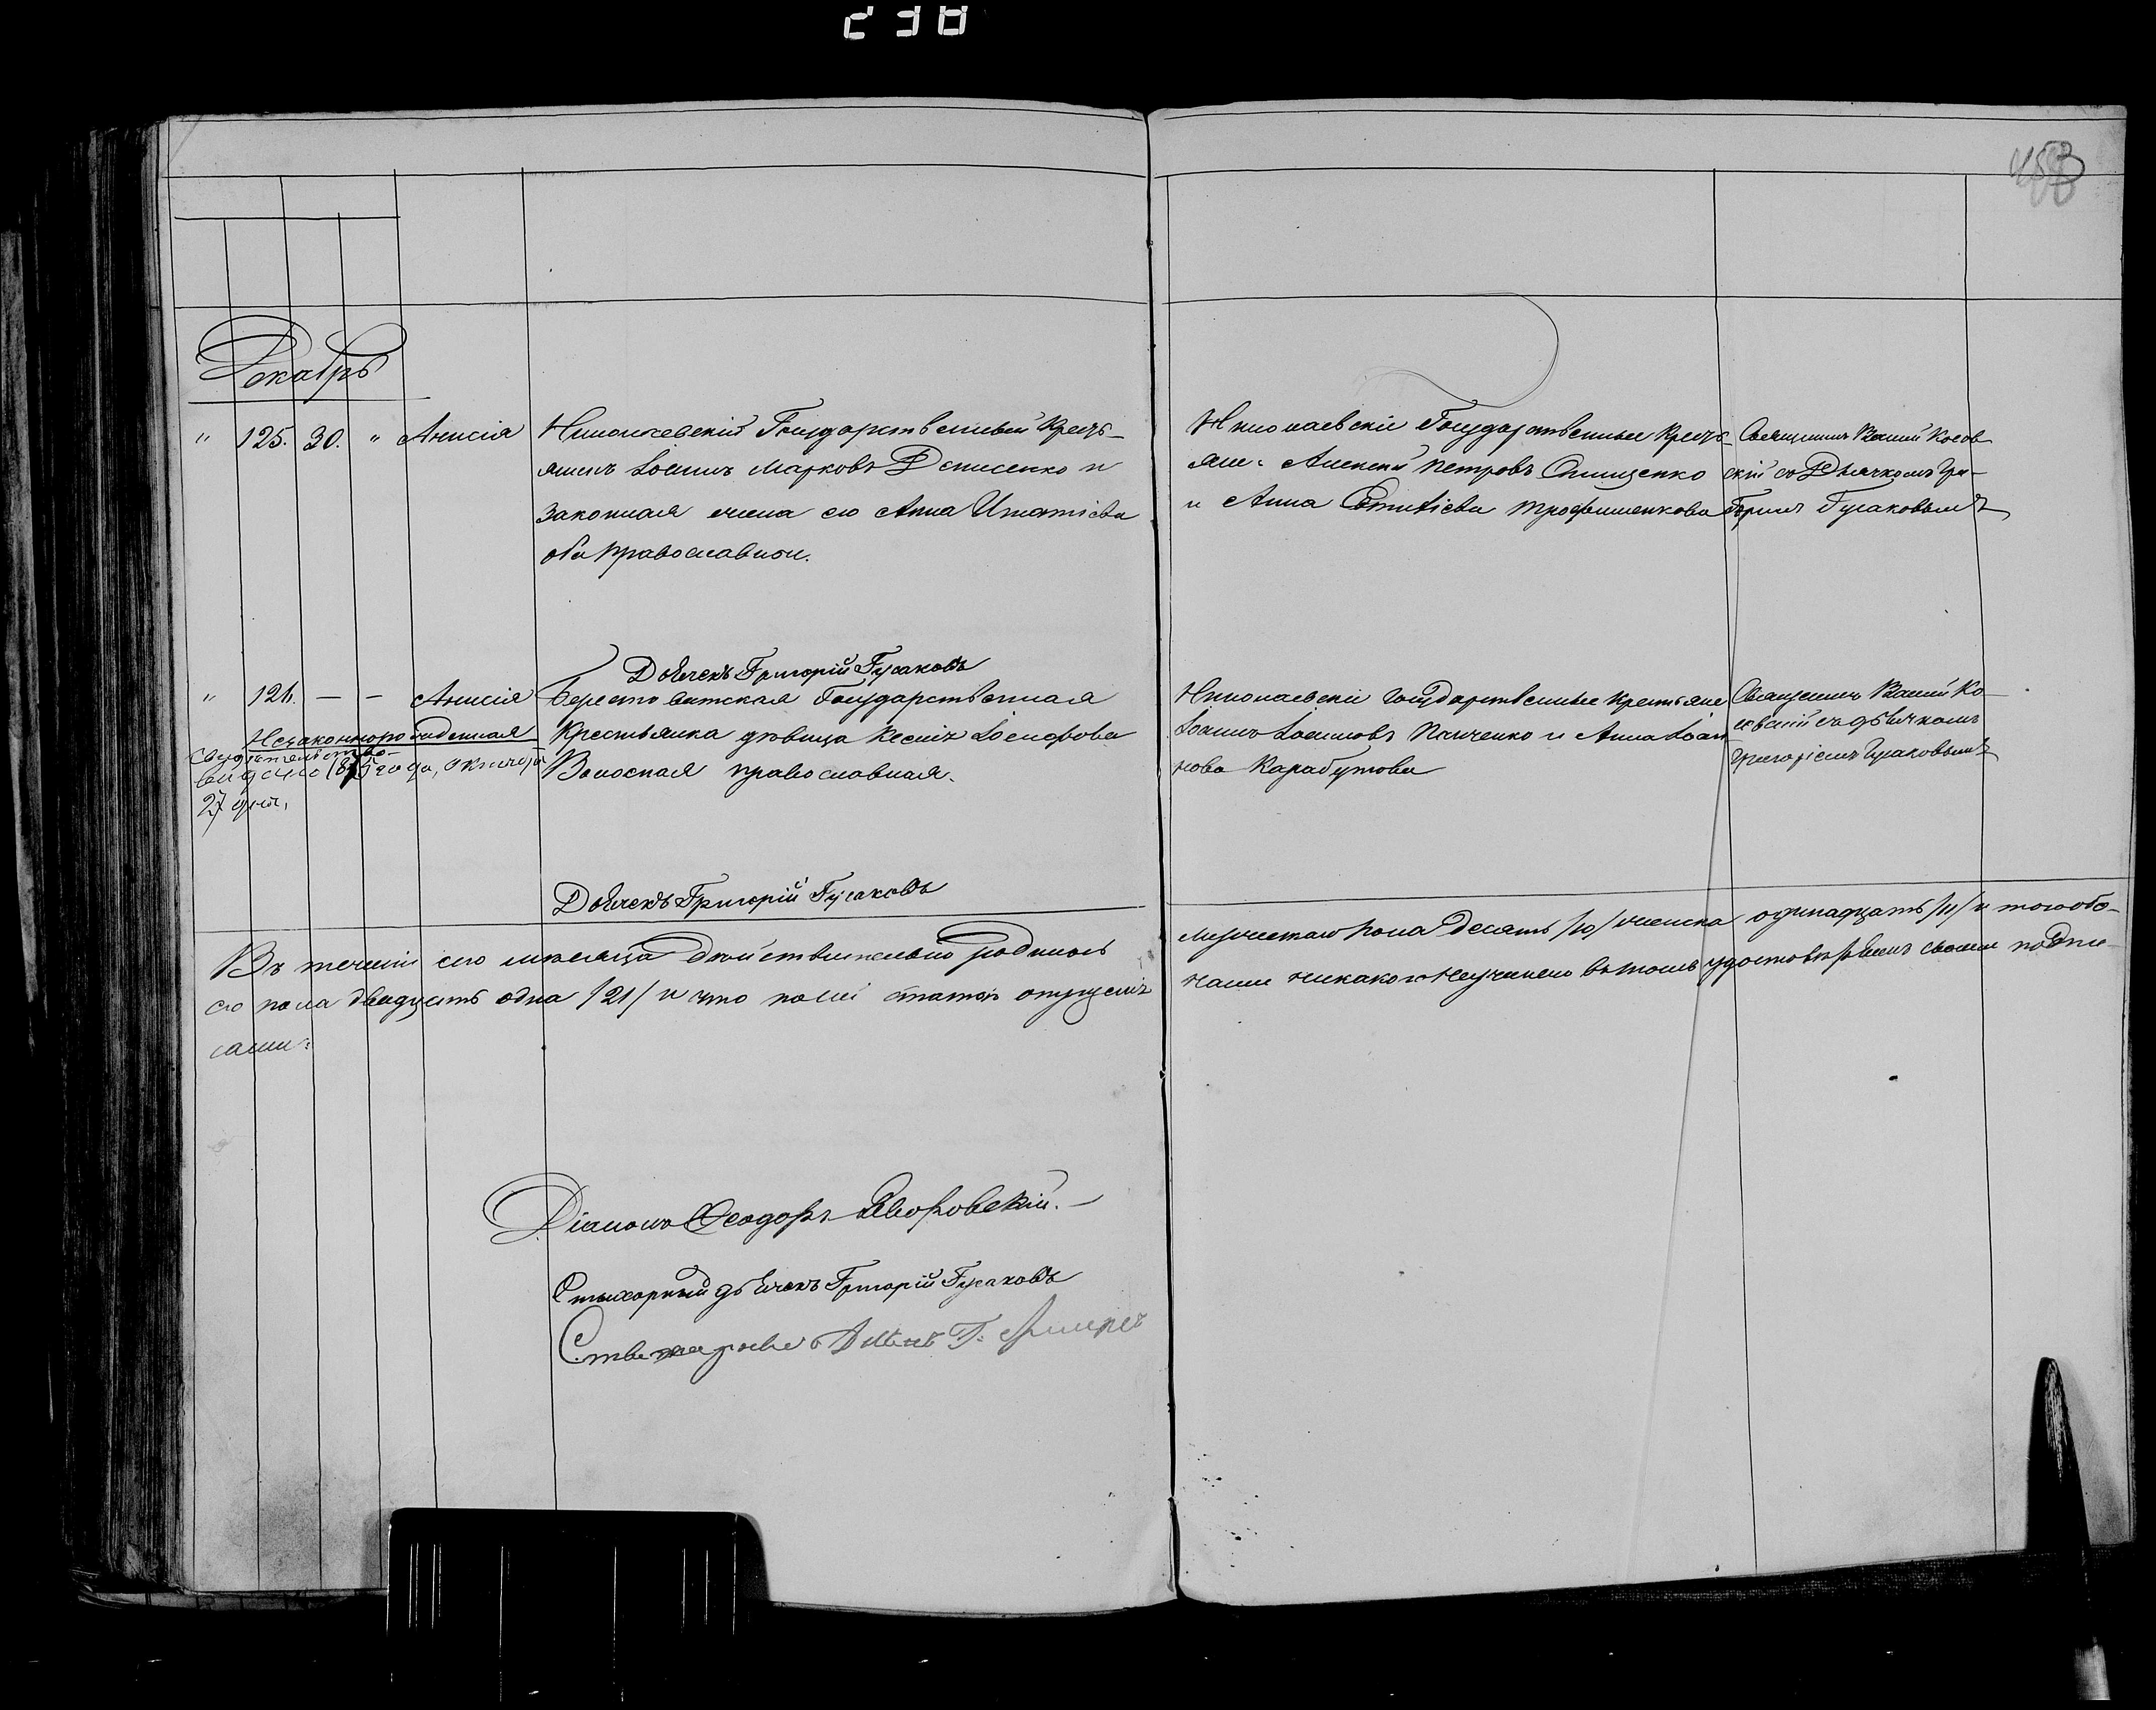 238
453
Декабрь
" 125. 30. " Анисія
Николаевскій Государственный Кресть-
янинъ Іоаннъ Марковъ Денисенко и
законная жена его Анна Игнатіева
оба православнои.
Николаевскіе Государственные Кресть-
яне: Алексей Петровъ Онищенко
и Анна Евтихіева Трофименкова
Священникъ Косов-
скій съ Дьячкомъ Гри-
горіемъ Гусаковымъ
Дьячекъ Григорій Гусаковъ
" 126. — — Анисія
Незаконнорожденная
Свидѣтельство
выдано года, октября
27 дня,
Берестоватская Государственная
Крестьянка дѣвица Ксенія Іосифова
Волосная православная.
Николаевскіе государственные крестьяне
Іоаннъ Іоанновъ Панченко и Анна Іоан
нова Карабутова
Священникъ Ко-
совскій съ дьячкомъ
Григоріемъ Гусаковымъ
Дьячекъ Григорій Гусаковъ
Въ теченіи сего мѣсяца дѣйствительно родилось
мужескаго пола десять /10/ женска одинадцать /11/ и того обо-
его пола двадцать одна /21/ и что по сей статьи опущенія
нами никакого неучинено въ томъ удостовѣряемъ своими подпи-
сами:
Діаконъ Феодоръ Яворовскій.
Стихарный дьячекъ Григорій Гусаковъ